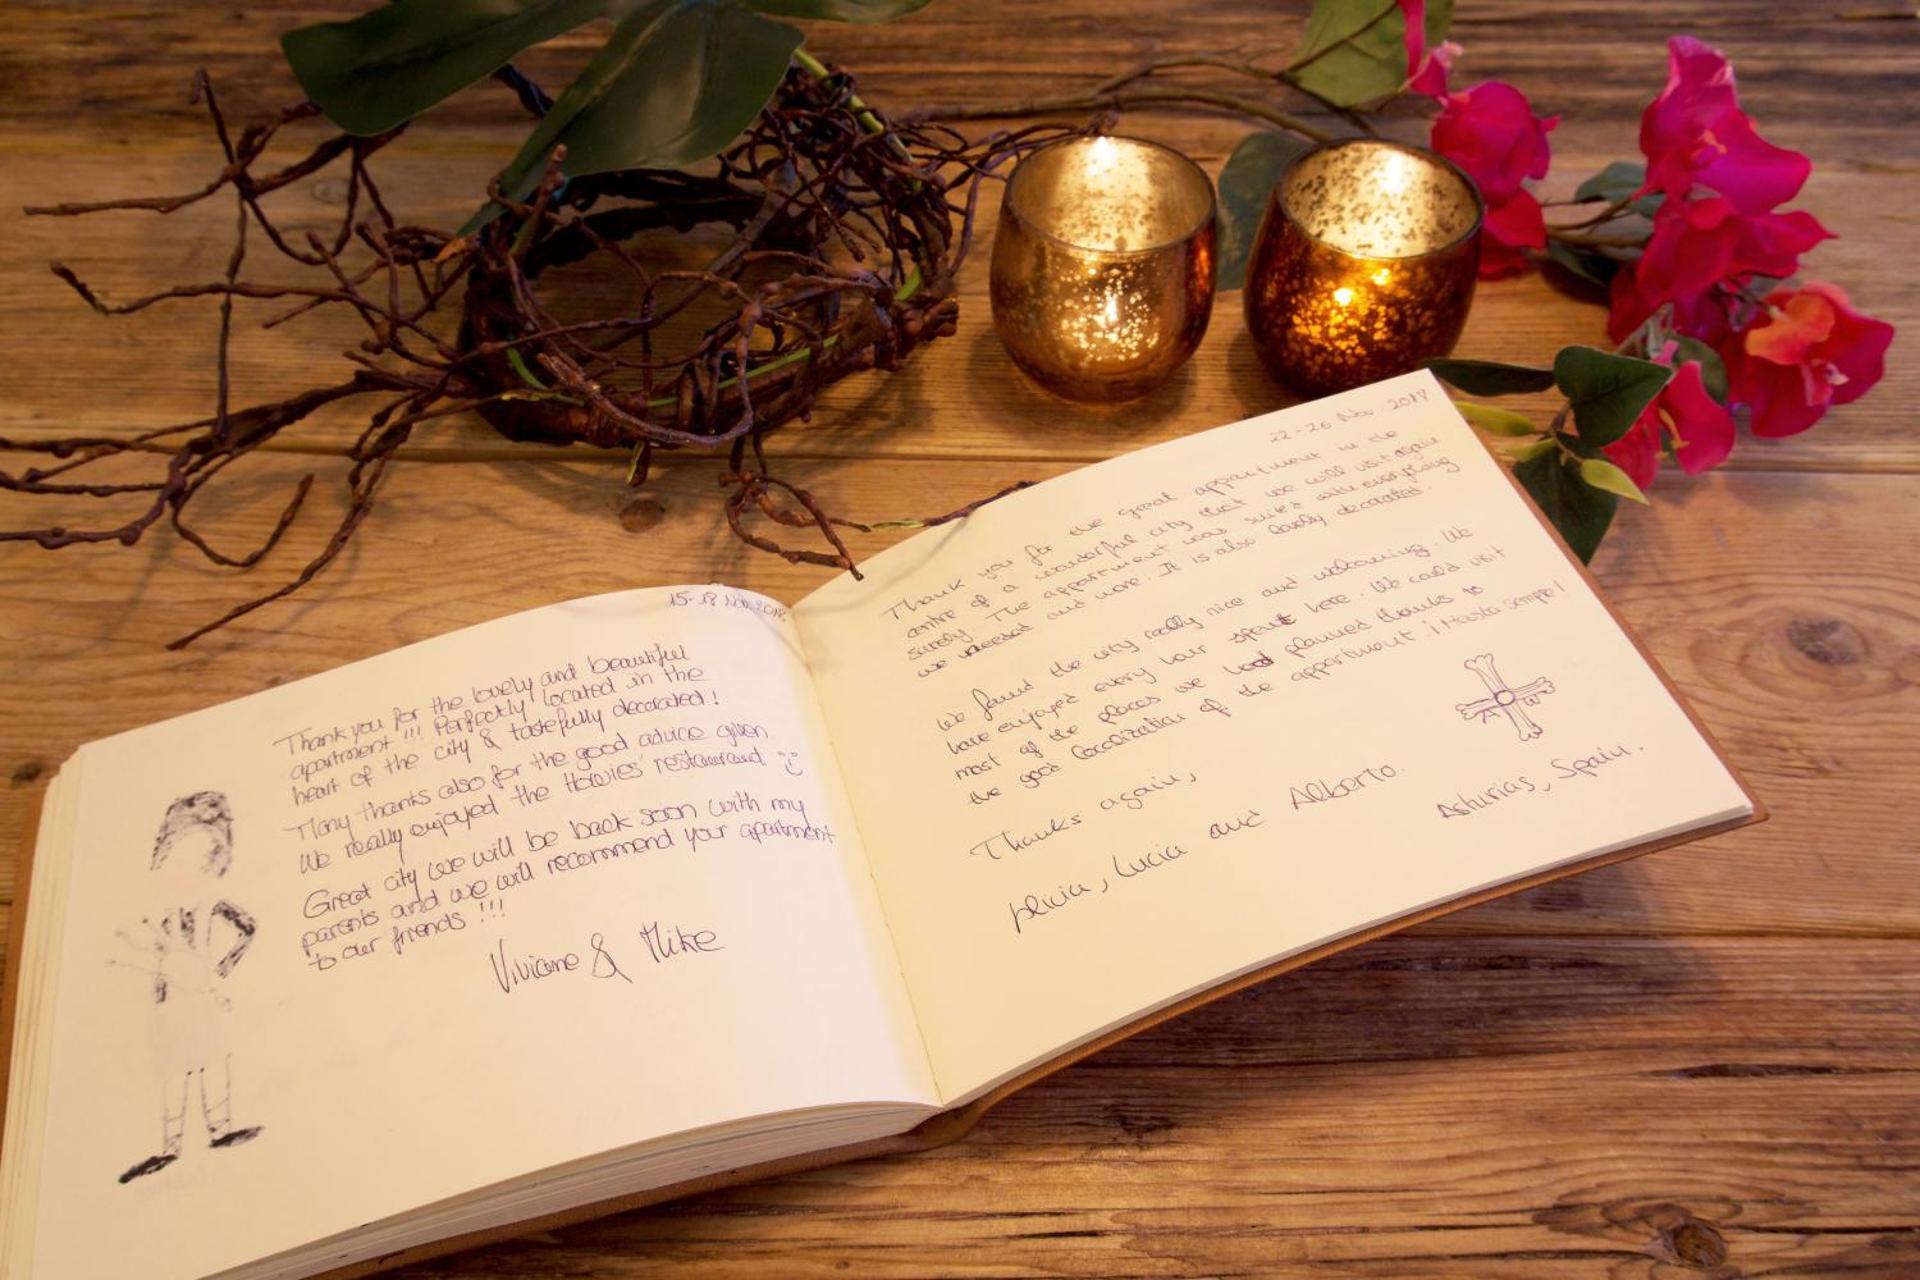 15-18 Nov. 2018.
Thank you for the lovely and beautiful
apartment!!! Perfectly located in the
heart of the city & tastefully decorated!
Many thanks also for the good advice given.
We really enjoyed the Howies' restaurant
Great city we will be back soon with my
parents and we will recommend your apartment
to our friends!!!
Viviane & Mike
22-26 Nov. 2018
Thank you for the great appartment in the
centre of a wonderful city that we will visit again
surely. The appartment was suited with everything
we needed and more. It is also lovely decorated.
We found the city really nice and welcoming. We
have enjoyed every hour spent here. We could visit
most of the places we had planned thanks to
the good localization of the appartment. ¡Hasta siempre!
Thanks again,
Lucía and Alberto.
Asturias, Spain.